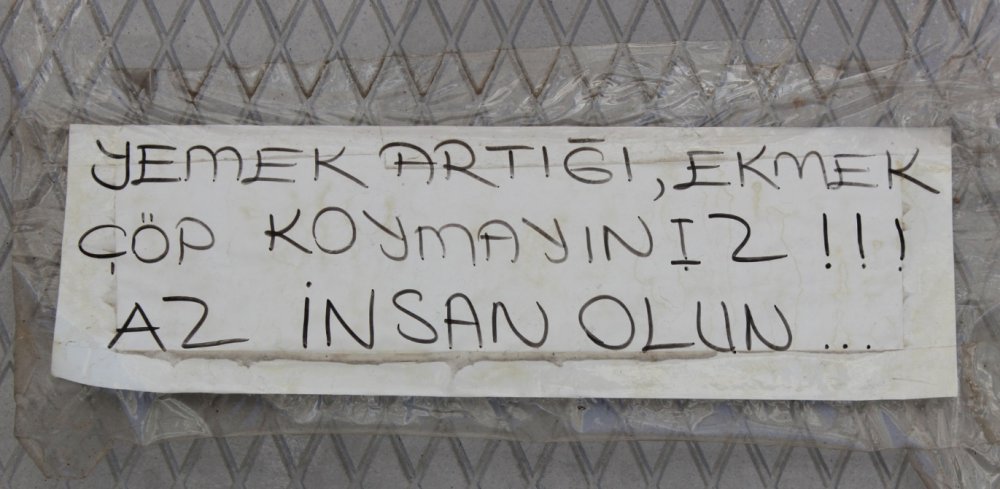 YEMEK ARTIĞI, EKMEK
ÇÖP KOYMAYINIZ !!!
AZ İNSAN OLUN ...